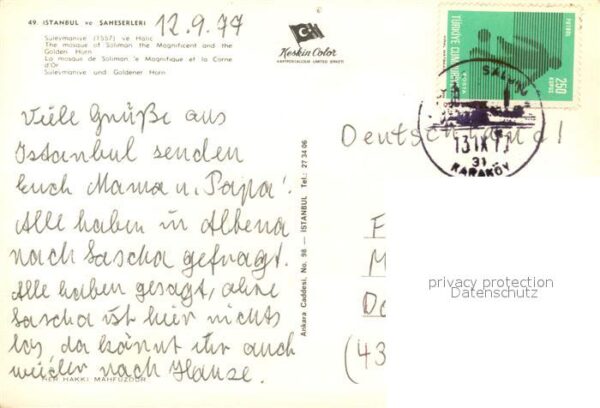 49. İSTANBUL ve ŞAHESERLERİ
12.9.77
Süleymaniye (1557) ve Haliç
The mosque of Soliman the Magnificent and the
Golden Horn
La mosque de Soliman 'e Magnifique et la Corne
d'Or
Süleymaniye und Goldener Horn
Keskin Color
KARTPOSTALCILIK LIMITED ŞİRKETİ
TÜRKİYE CUMHURİYETİ
POSTA
250
KURUŞ
13 IX 77
31
KARAKÖY
Viele Grüße aus
Istanbul senden
Euch Mama u. Papa!
Alle haben in Albena
nach Sascha gefragt.
Alle haben gesagt, ohne
Sascha ist hier nichts
los, da könnt ihr auch
wieder nach Hause.
HER HAKKI MAHFUZDUR
Ankara Caddesi, No. 98 — İSTANBUL Tel.: 27 34 06
Deutschland!
F
M
D
(43
privacy protection
Datenschutz